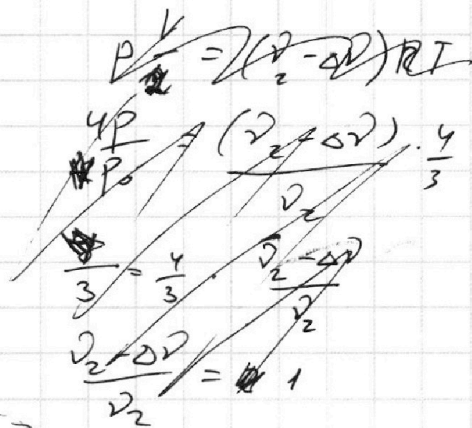 P V/2 = (ν₂ - Δν) RT
4P/P₀ = (ν₂ - Δν)/ν₂ · 4/3
/3 = 4/3 · (ν₂ - Δν)/ν₂
(ν₂ - Δν)/ν₂ = 1